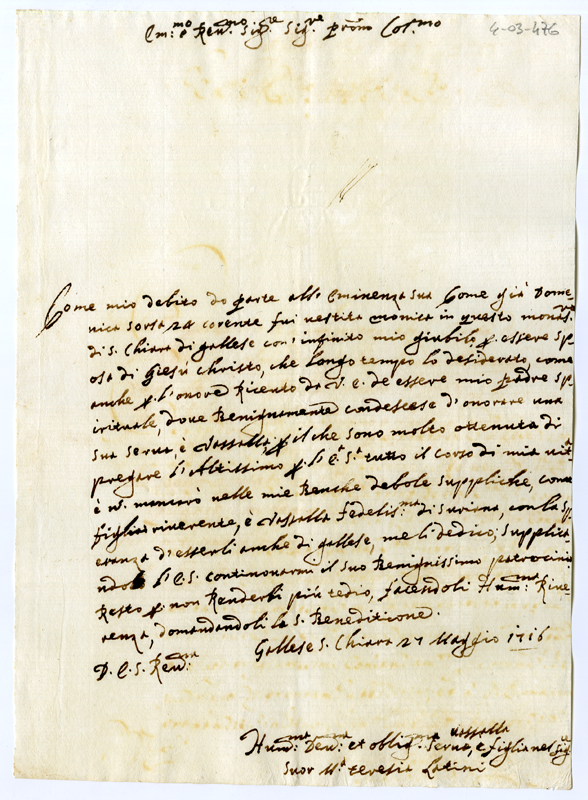 Em:mo e Rev:mo Sig:re Sig:re Pron Col:mo
4-03-476
Come mio debito do parte all' Eminenza Sua Come già Dome-
nica sorsa 24 corente fui vestita monica in questo monast:
di S. Chiara di gallese con' infinito mio giubilo p essere sp
osa di Giesù Christo, che longo tempo lo desiderato, come
anche p l'onore Riceuto da V. E. de essere mio padre sp
irituale, doue Benignamente condescese d'onorare una
sua serua, è vassalla, p il che sono molto ottenuta di
pregare l'Altissimo p l'E.a S.a tutto il corso di mia uita
è n' mancarò nelle mie Benche debole suppliche, come
figlia riuerente, è vassalla fedelis:ma di Suriana, con la sp
eranza d'esserli anche di gallese, me li dedico; supplica
ndo l'E.S. continouarmi il suo Benignissimo patrocinio
Resto p non Renderli più tedio, facendoli Hum:ma Riue
renza, domandandoli la S. Beneditione.
Gallese S. Chiara 27 Maggio 1716
D. E. S. Reu:ma
vassalla
Hum:ma Deu:ma et oblig:ma serua, e figlia nel Sig:re
Suor M.a teresia Latini